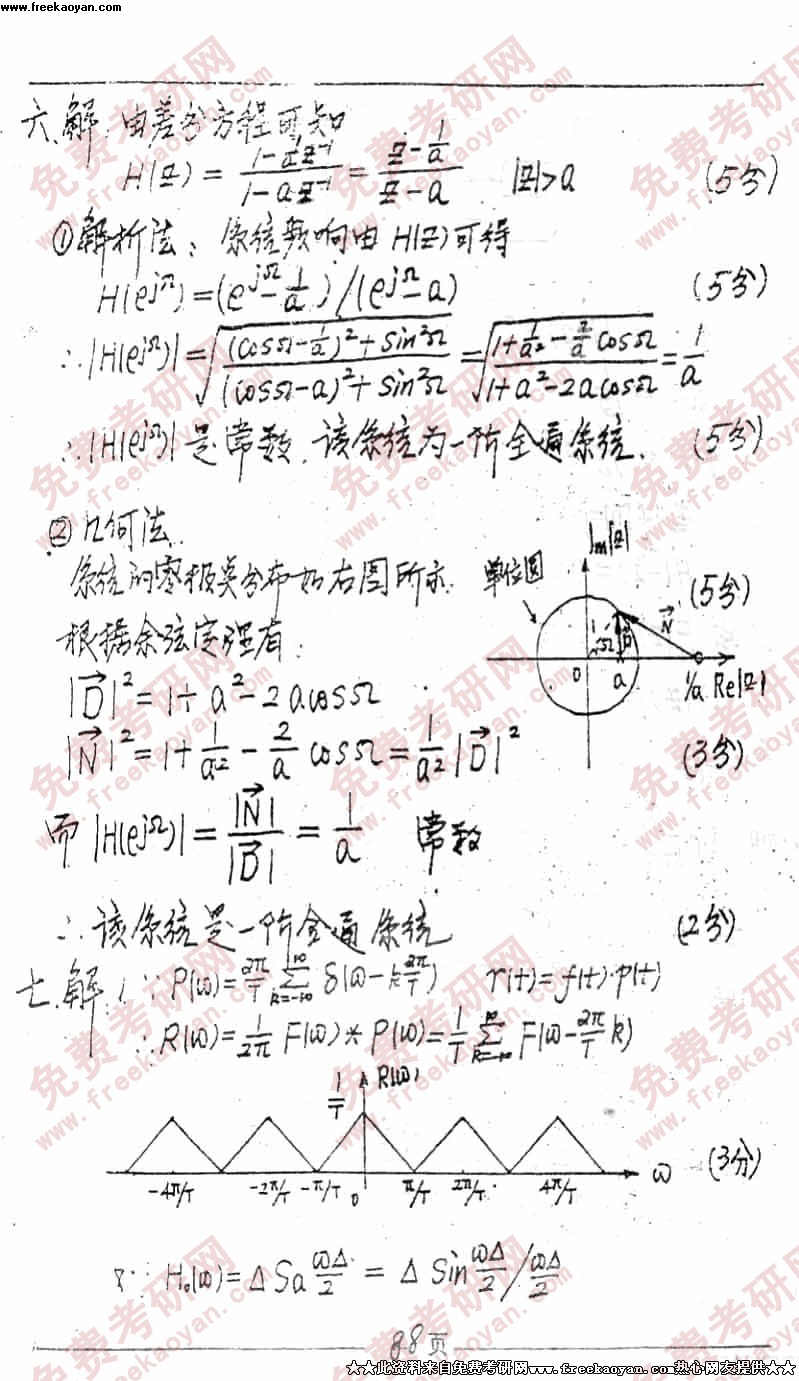 www.freekaoyan.com
六.解:由差分方程可知
H(z) = (1-a⁻¹z⁻¹)/(1-az⁻¹) = (z-1/a)/(z-a) |z|>a (5分)
①解析法: 系统频响由 H(z)可得
H(e^jΩ)=(e^jΩ-1/a)/(e^jΩ-a) (5分)
∴|H(e^jΩ)|=√(((cosΩ-1/a)²+sin²Ω)/((cosΩ-a)²+sin²Ω))=√((1+1/a²-2/a cosΩ)/(1+a²-2acosΩ))=1/a
∴|H(e^jΩ)|是常数,该系统为一阶全通系统. (5分)
②几何法.
系统的零极点分布如右图所示. (5分)
单位圆
Im[z]
N⃗
D⃗
1
Ω
0
a
1/a
Re[z]
根据余弦定理有:
|D⃗|²=1+a²-2acosΩ
|N⃗|²=1+1/a²-2/a cosΩ=1/a²|D⃗|² (3分)
而|H(e^jΩ)|=|N⃗|/|D⃗|=1/a 常数
∴该系统是一阶全通系统 (2分)
七.解:1.∵P(ω)=2π/T ∑_{k=-∞}^{∞} δ(ω-k2π/T) r(t)=f(t)·p(t)
∴R(ω)=1/2π F(ω)*P(ω)=1/T ∑_{k=-∞}^{∞} F(ω-2π/T k)
1/T
R(ω)
-4π/T -2π/T -π/T 0 π/T 2π/T 4π/T ω (3分)
又∵H₀(ω)=Δ Sa ωΔ/2 = Δ Sin ωΔ/2 / ωΔ/2
88页
★★此资料来自免费考研网www.freekaoyan.com热心网友提供★★
免费考研网
www.freekaoyan.com